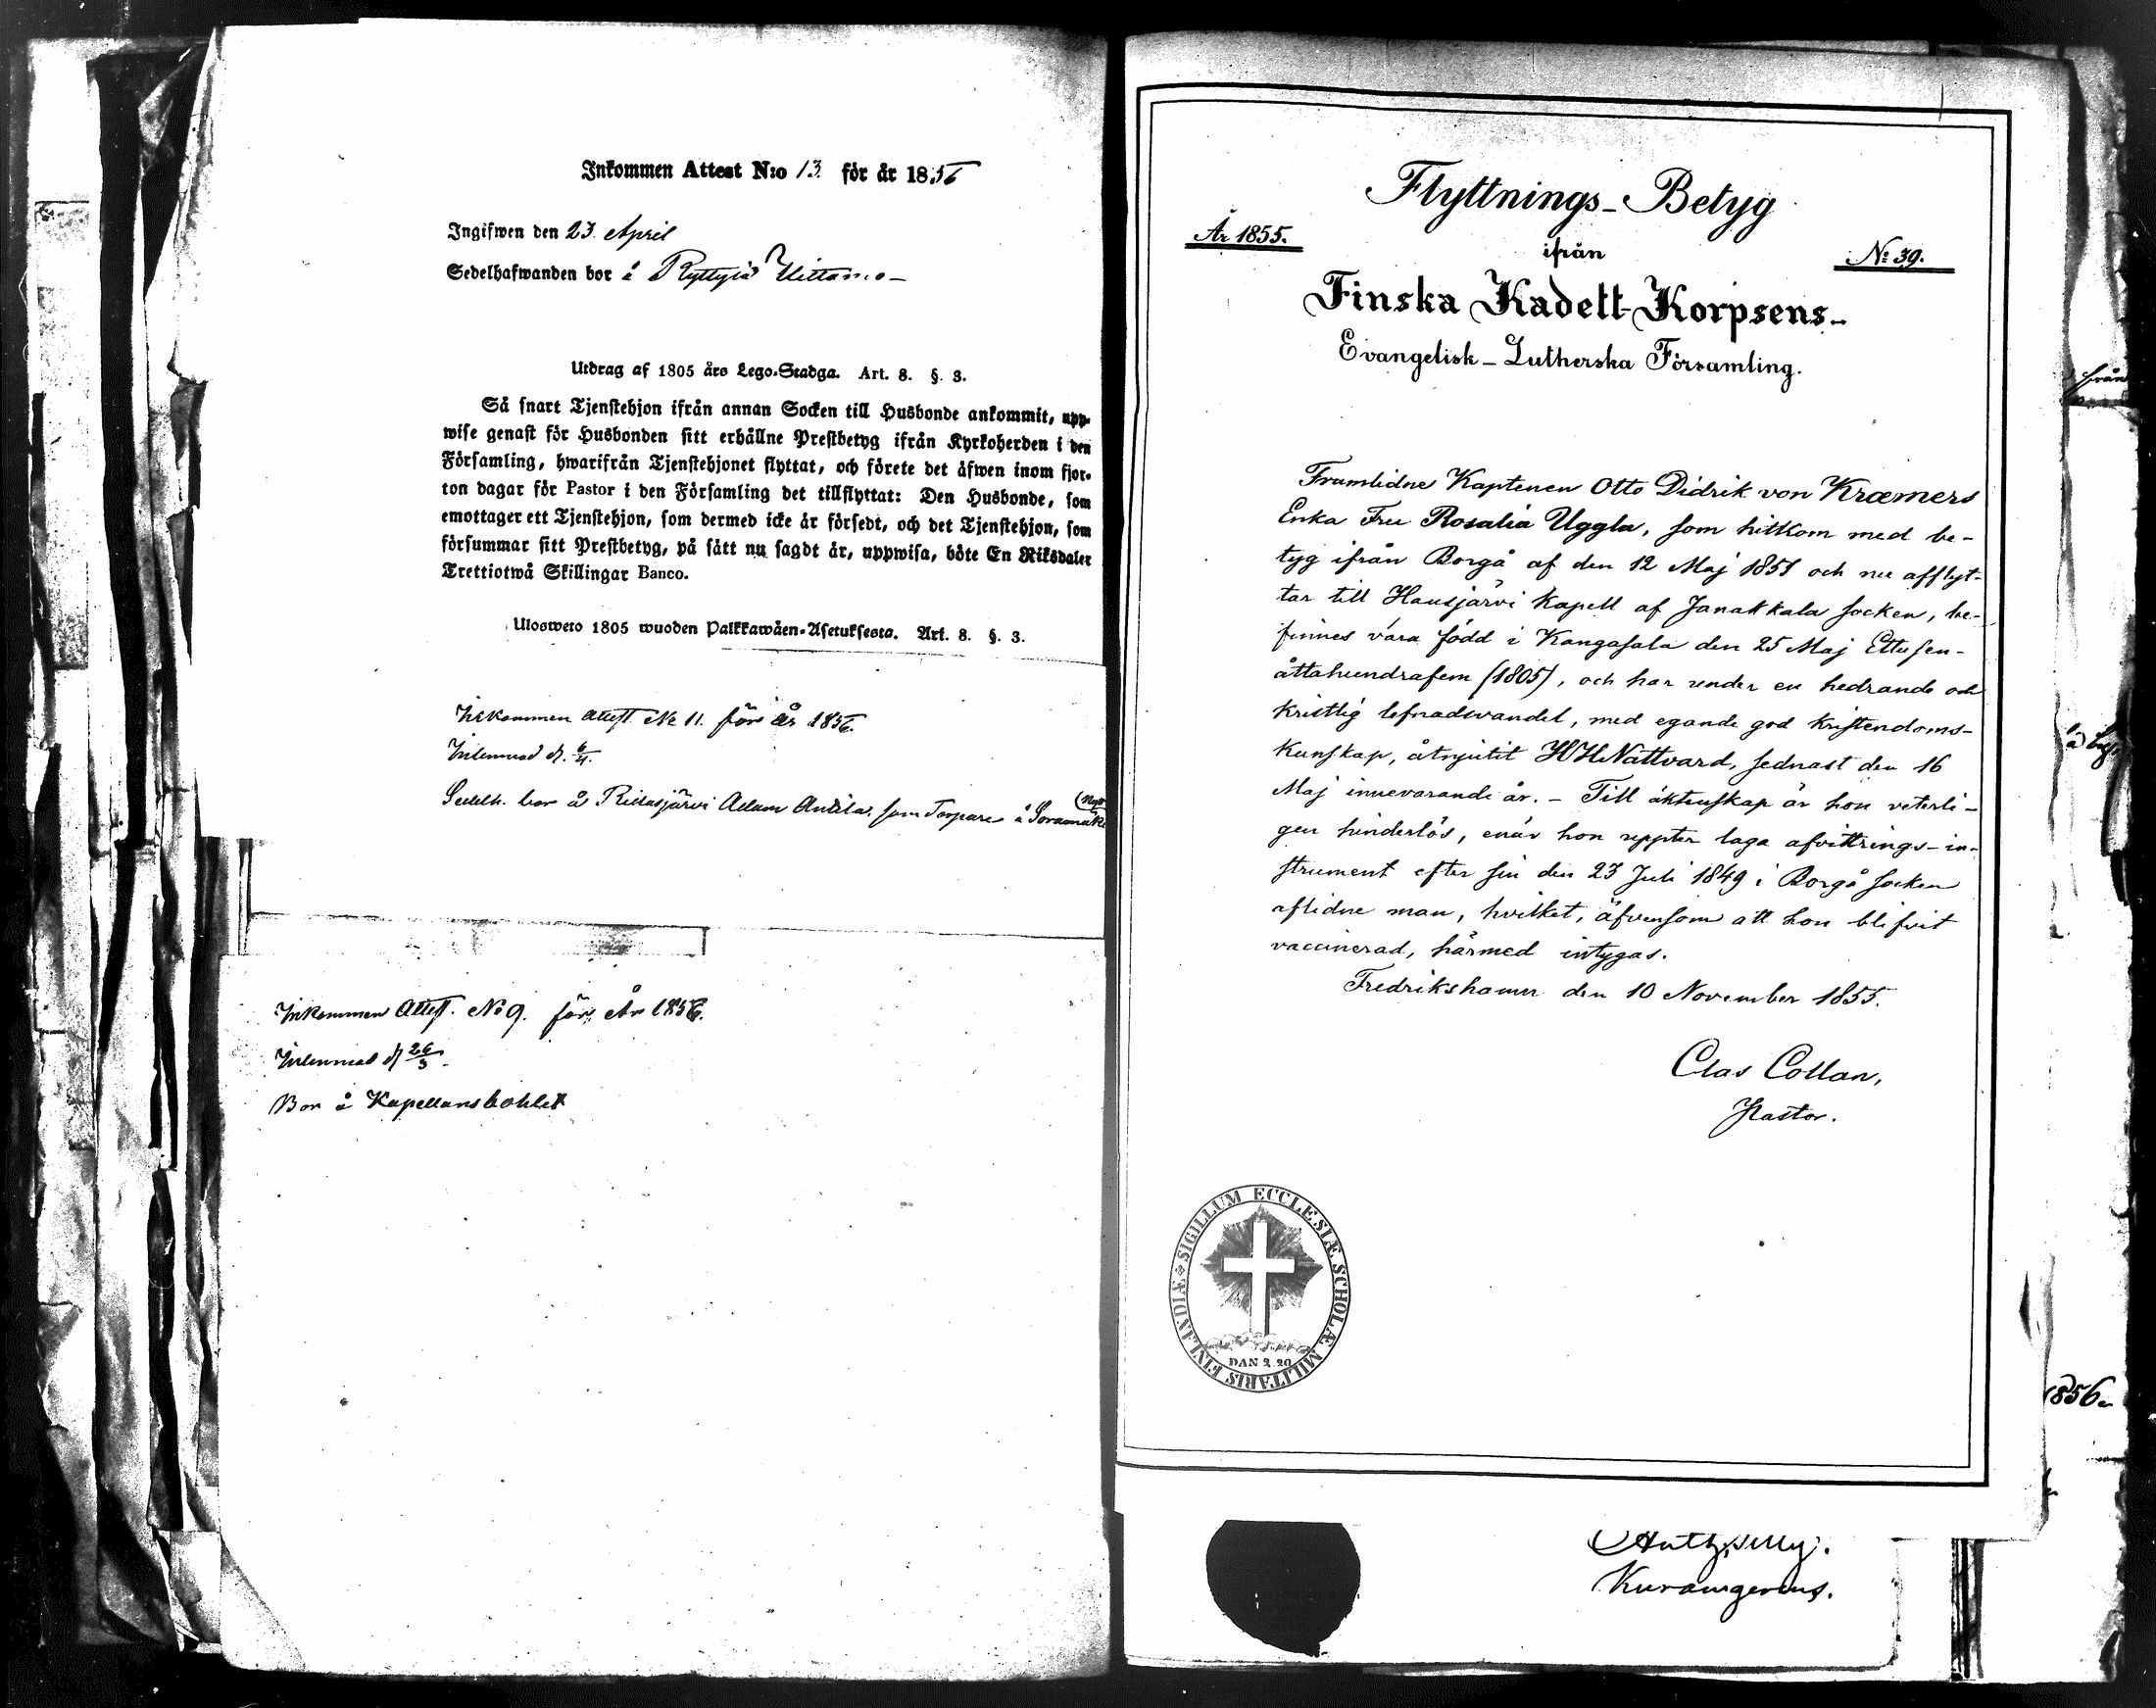 Inkommen Attest N:o 13 för år 1856
Ingifwen den 23 April
Sedelhafwanden bor å Ryttylä Uittamo
Utdrag af 1805 års Lego-Stadga. Art. 8. §. 3.
Så snart Tjenstehjon ifrån annan Socken till Husbonde ankommit, upp-
wise genast för Husbonden sitt erhållne Prestbetyg ifrån Kyrkoherden i den
Församling, hwarifrån Tjenstehjonet flyttat, och förete det äfwen inom fjor-
ton dagar för Pastor i den Församling det tillflyttat: Den Husbonde, som
emottager ett Tjenstehjon, som dermed icke är försedt, och det Tjenstehjon, som
försummar sitt Prestbetyg, på sätt nu sagdt är, uppwisa, böte En Riksdaler
Trettiotwå Skillingar Banco.
Ulosweto 1805 wuoden Palkkawäen-Asetuksesta. Art. 8. §. 3.
Inkommen Attest No 11. för år 1856.
Inlemnad d. 6/4.
Sedelh. bor å Ridasjärvi Adam Anttila som Torpare å
Inkommen Attest. No 9. för år 1856.
Inlemnad d 26/3.
Bor å Kapellansbohlet
Flyttnings-Betyg
År 1855.
ifrån
No 39.
Finska Kadett-Korpsens
Evangelisk-Lutherska Församling.
Framlidne Kaptenen Otto Didrik von Kræmers
Enka Fru Rosalia Uggla, som hitkom med be-
tyg ifrån Borgå af den 12 Maj 1851 och nu afflyt-
tar till Hausjärvi Kapell af Janakkala socken, be-
finnes vara född i Kangasala den 25 Maj Ettusen-
åttahundrafem (1805), och har under en hedrande och
kristlig lefnadsvandel, med egande god kristendoms-
kunskap, åtnjutit H H Nattvard, sednast den 16
Maj innevarande år. - Till äktenskap är hon veterli-
gen hinderlös, enär hon uppter laga afvittrings-in-
strument efter sin den 23 Juli 1849 i Borgå socken
aflidne man, hvilket, äfvensom att hon blifvit
vaccinerad, härmed intygas.
Fredrikshamn den 10 November 1855.
Clas Collan,
Pastor.
SIGILLUM ECCLESIÆ SCHOLÆ MILITARIS FINLANDIÆ
DAN 2 20
från
1856.